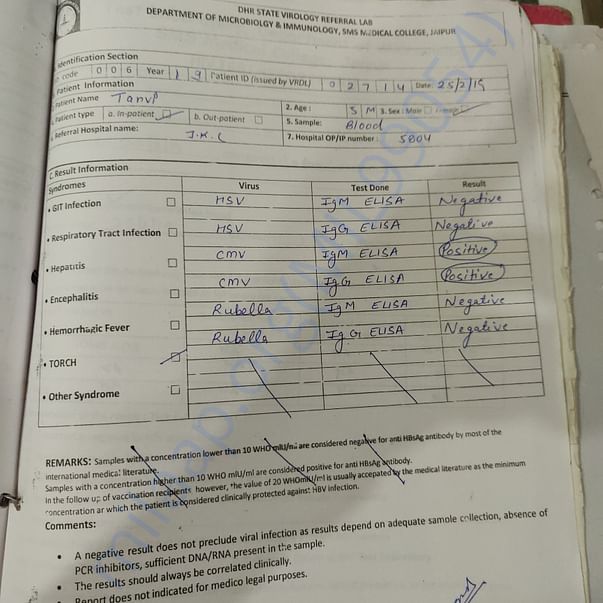 DHR STATE VIROLOGY REFERRAL LAB
DEPARTMENT OF MICROBIOLGY & IMMUNOLOGY, SMS MEDICAL COLLEGE, JAIPUR
Identification Section
code 0 0 6 Year 1 9 Patient ID (issued by VRDL) 0 2 7 1 4 Date: 25/2/19
Patient Information
Patient Name Tanvi 2. Age : 5 M 3. Sex : Male Female
Patient type a. In-patient b. Out-patient 5. Sample: Blood
Referral Hospital name: J.K.C 7. Hospital OP/IP number : 5804
C. Result Information
Syndromes Virus Test Done Result
• GIT Infection HSV IgM ELISA Negative
• Respiratory Tract Infection HSV IgG ELISA Negative
CMV IgM ELISA Positive
• Hepatitis CMV IgG ELISA Positive
• Encephalitis Rubella IgM ELISA Negative
• Hemorrhagic Fever Rubella IgG ELISA Negative
• TORCH
• Other Syndrome
REMARKS: Samples with a concentration lower than 10 WHO mIU/ml are considered negative for anti HBsAg antibody by most of the
international medical literature.
Samples with a concentration higher than 10 WHO mIU/ml are considered positive for anti HBsAg antibody.
In the follow up of vaccination recipients however, the value of 20 WHOmIU/ml is usually accepated by the medical literature as the minimum
concentration ar which the patient is considered clinically protected against HBV infection.
Comments:
• A negative result does not preclude viral infection as results depend on adequate sample collection, absence of
PCR inhibitors, sufficient DNA/RNA present in the sample.
• The results should always be correlated clinically.
• Report does not indicated for medico legal purposes.